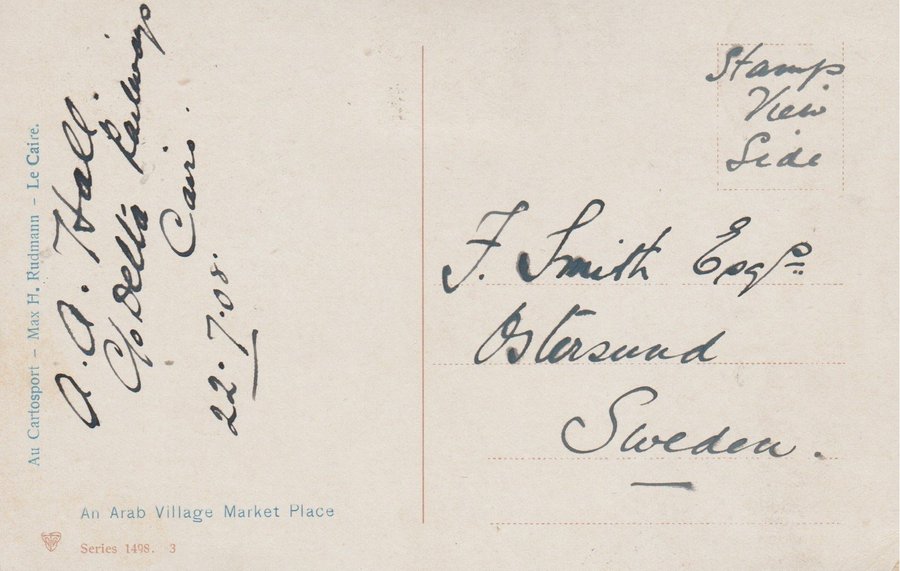 Au Cartosport – Max H. Rudmann – Le Caire.
A. A. Hall.
C/o Delta Railways
Cairo.
22.7.08.
An Arab Village Market Place
Series 1498. 3
Stamp
View
Side
F. Smith Esqre
Ostersund
Sweden.